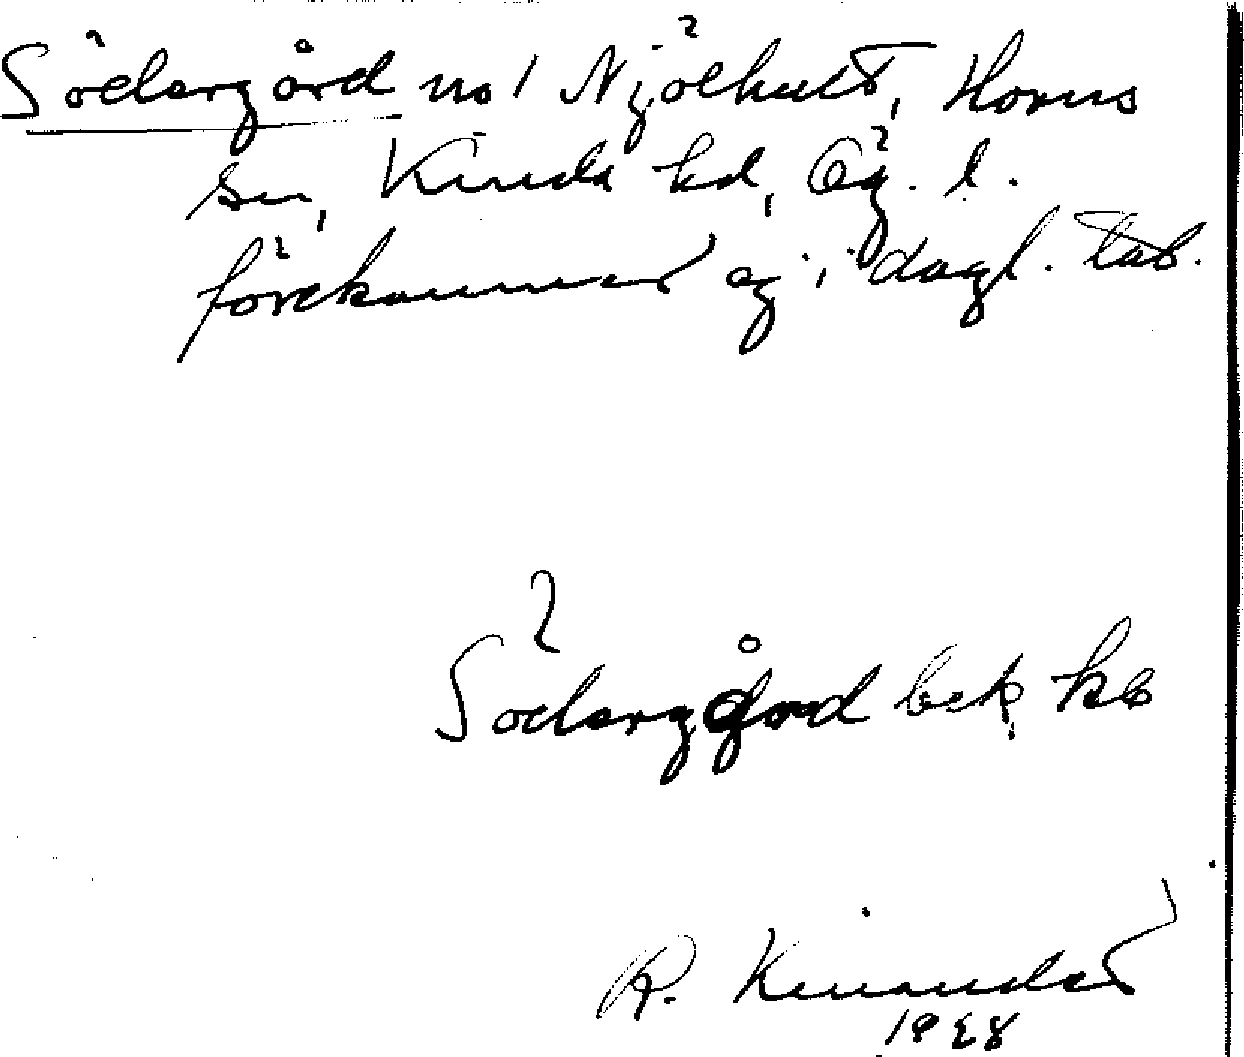 Södergård no 1 Njölhult, Horns
sn, Kinda hd, Ög. l.
förekommer ej i dagl. tal.
Södergård bek. kb
R. Kinander
1948